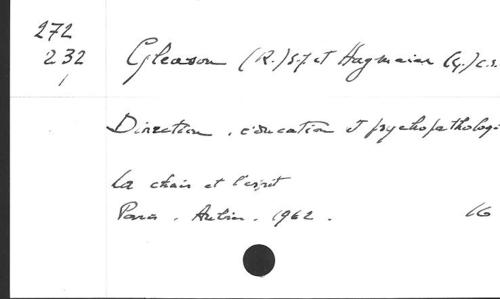 272
232
/
Gleason (R.) S.J et Hagmaier (G.) c.s.
Direction, éducation et psychopathologi
La chair et l'esprit
Paris. Aubier. 1962.
16